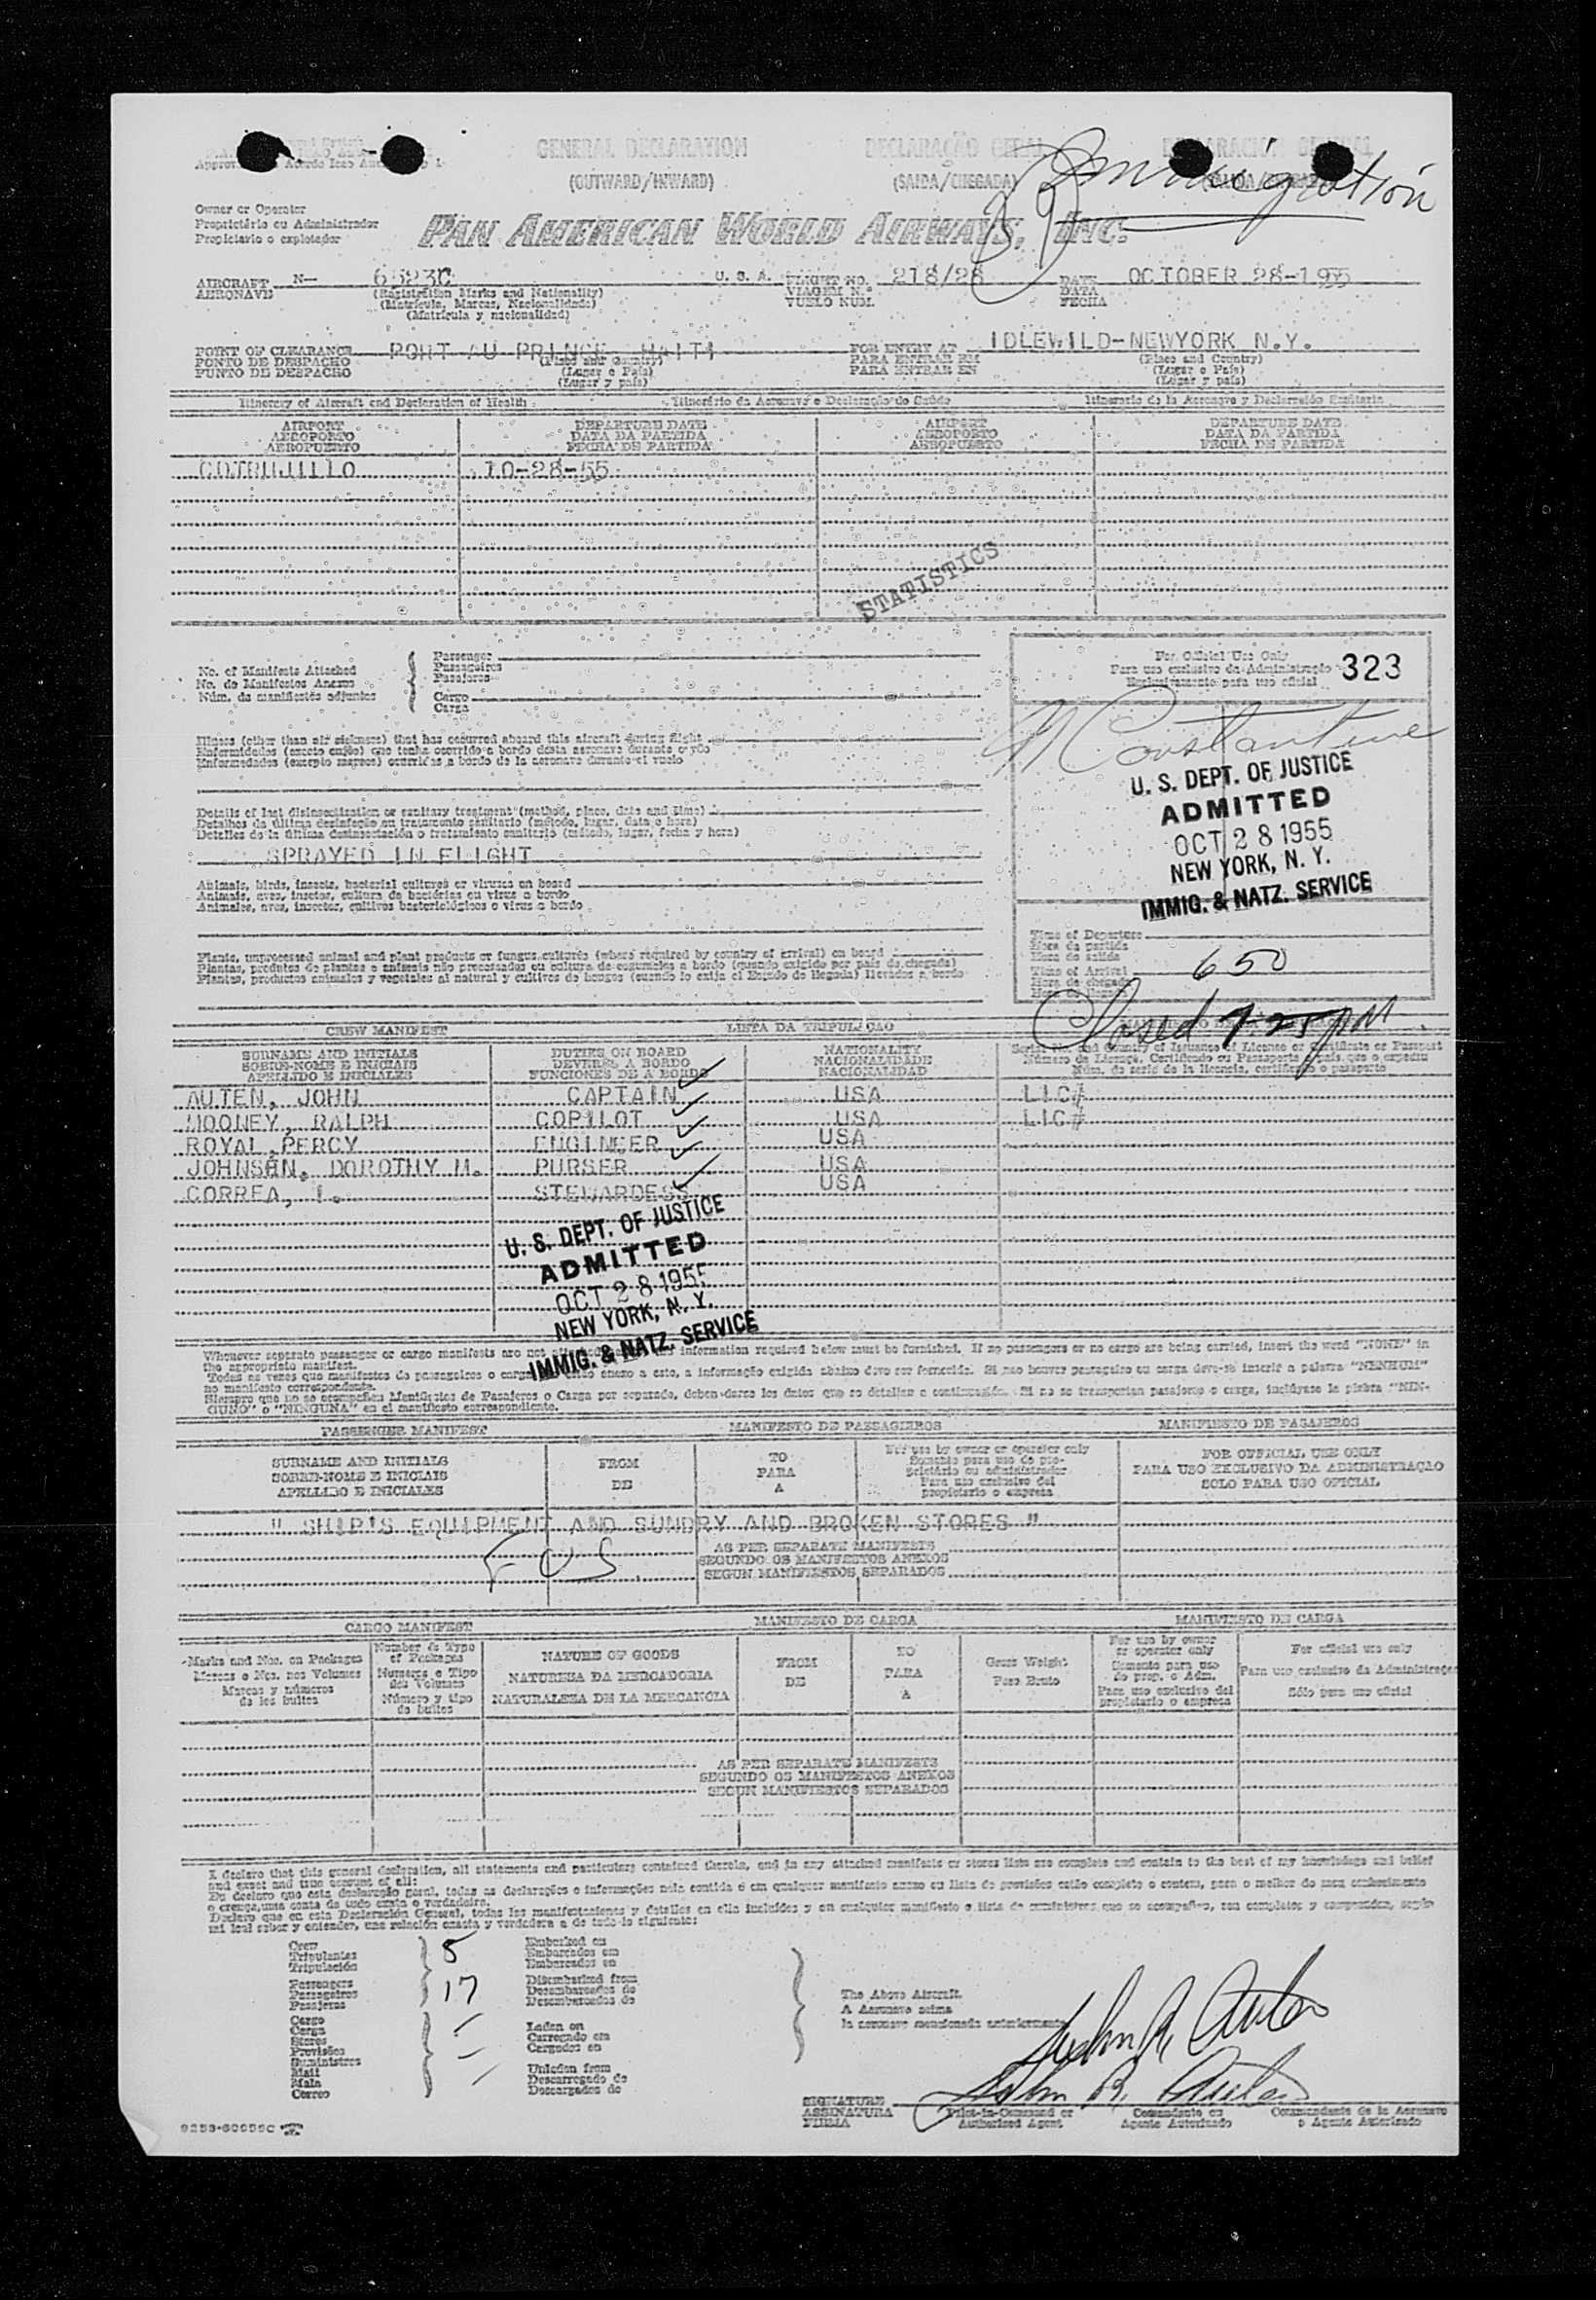 GENERAL DECLARATION
(OUTWARD/INWARD)
DECLARAÇÃO GERAL
(SAIDA/CHEGADA)
Immigration
Owner or Operator
Proprietário ou Administrador
Propietario o explotador
PAN AMERICAN WORLD AIRWAYS, INC.
AIRCRAFT N— 6523C U. S. A. FLIGHT NO. 218/28 DATE OCTOBER 28-1955
AERONAVE (Registration Marks and Nationality) VIAGEM N.º DATA
(Matrícula, Marcas, Nacionalidade) VUELO NUM. FECHA
(Matrícula y nacionalidad)
POINT OF CLEARANCE PORT AU PRINCE, HAITI FOR ENTRY AT IDLEWILD-NEWYORK N.Y.
PONTO DE DESPACHO (Place and Country) PARA ENTRAR EM (Place and Country)
PUNTO DE DESPACHO (Lugar e País) PARA ENTRAR EN (Lugar e País)
(Lugar y país) (Lugar y país)
Itinerary of Aircraft and Declaration of Health Itinerário da Aeronave e Declaração de Saúde Itinerario de la Aeronave y Declaración Sanitaria
AIRPORT DEPARTURE DATE AIRPORT DEPARTURE DATE
AEROPORTO DATA DA PARTIDA AEROPORTO DATA DA PARTIDA
AEROPUERTO FECHA DE PARTIDA AEROPUERTO FECHA DE PARTIDA
CDTRUJILLO 10-28-55
STATISTICS
No. of Manifests Attached
No. de Manifestos Anexos
Núm. de manifiestos adjuntos
Passenger
Passageiros
Pasajeros
Cargo
Carga
For Official Use Only
Para uso exclusivo da Administração
Exclusivamente para uso oficial
323
Constantine
U. S. DEPT. OF JUSTICE
ADMITTED
OCT 28 1955
NEW YORK, N. Y.
IMMIG. & NATZ. SERVICE
Illness (other than air sickness) that has occurred aboard this aircraft during flight
Enfermidades (exceto enjôo) que tenha ocorrido a bordo desta aeronave durante o vôo
Enfermedades (excepto mareos) ocurridas a bordo de la aeronave durante el vuelo
Details of last disinsectization or sanitary treatment (method, place, date and time)
Detalhes da última desinfeção ou tratamento sanitário (método, lugar, data e hora)
Detalles de la última desinsectación o tratamiento sanitario (método, lugar, fecha y hora)
SPRAYED IN FLIGHT
Animals, birds, insects, bacterial cultures or viruses on board
Animais, aves, insetos, cultura de bactérias ou virus a bordo
Animales, aves, insectos, cultivos bacteriológicos o virus a bordo
Plants, unprocessed animal and plant products or fungus cultures (where required by country of arrival) on board
Plantas, produtos de plantas e animais não processados ou cultura de cogumelos a bordo (quando exigido por país de chegada)
Plantas, productos animales y vegetales al natural y cultivos de hongos (cuando lo exija el Estado de llegada) llevados a bordo
Time of Departure
Hora da partida
Hora de salida
Time of Arrival 650
Hora da chegada
Closed 725 PM
CREW MANIFEST LISTA DA TRIPULAÇÃO
SURNAME AND INITIALS DUTIES ON BOARD NATIONALITY Serial No. and Country of Issuance of License or Certificate or Passport
SOBRE-NOME E INICIAIS DEVERES A BORDO NACIONALIDADE Número da Licença, Certificado ou Passaporte e país que o expediu
APELLIDO E INICIALES FUNCIONES DE A BORDO NACIONALIDAD Núm. de serie de la licencia, certificado o pasaporte
AUTEN, JOHN CAPTAIN USA LIC#
MOONEY, RALPH COPILOT USA LIC#
ROYAL, PERCY ENGINEER USA
JOHNSEN, DOROTHY M. PURSER USA
CORREA, I. STEWARDESS USA
U. S. DEPT. OF JUSTICE
ADMITTED
OCT 28 1955
NEW YORK, N. Y.
IMMIG. & NATZ. SERVICE
Whenever separate passenger or cargo manifests are not information required below must be furnished. If no passengers or no cargo are being carried, insert the word "NONE" in
the appropriate manifest.
Todas as vezes que manifestos de passageiros o carga anexo a este, a informação exigida abaixo deve ser fornecida. Si nao houver passageiro ou carga deve-se inserir a palavra "NENHUM"
no manifesto correspondente.
Siempre que no se acompañen Manifiestos de Pasajeros o Carga por separado, deben darse los datos que se detallan a continuación. Si no se transportan pasajeros o carga, inclúyase la plabra "NIN-
GUNO" o "NINGUNA" en el manifiesto correspondiente.
PASSENGER MANIFEST MANIFESTO DE PASSAGIEROS MANIFIESTO DE PASAJEROS
SURNAME AND INITIALS FROM TO For use by owner or operator only FOR OFFICIAL USE ONLY
SOBRE-NOME E INICIAIS DE PARA Somente para uso de pro- PARA USO EXCLUSIVO DA ADMINISTRAÇÃO
APELLIDO E INICIALES A prietário ou administrador SOLO PARA USO OFICIAL
Para uso exclusivo del
propietario o empresa
" SHIP'S EQUIPMENT AND SUNDRY AND BROKEN STORES "
AS PER SEPARATE MANIFESTS
SEGUNDO OS MANIFESTOS ANEXOS
SEGUN MANIFIESTOS SEPARADOS
CARGO MANIFEST MANIFESTO DE CARGA MANIFIESTO DE CARGA
Marks and Nos. on Packages Number & Type of Packages NATURE OF GOODS FROM TO Gross Weight For use by owner or operator only For official use only
Marcas e Nos. nos Volumes Numeros e Tipo dos Volumes NATUREZA DA MERCADORIA DE PARA Peso Bruto Somente para uso do prop. o Adm. Para uso exclusivo da Administração
Marcas y números de los bultos Número y tipo de bultos NATURALEZA DE LA MERCANCIA A Para uso exclusivo del propietario o empresa Sólo para uso oficial
AS PER SEPARATE MANIFESTS
SEGUNDO OS MANIFESTOS ANEXOS
SEGUN MANIFIESTOS SEPARADOS
I declare that this general declaration, all statements and particulars contained therein, and in any attached manifests or stores lists are complete and contain to the best of my knowledge and belief
and exact and true account of all:
Eu declaro que esta declaração geral, todas as declarações e informações nela contida e em qualquer manifesto anexo ou lista de provisões estão completo e contem, para o melhor do meu conhecimento
e crença, uma conta de tudo exata e verdadeira.
Declaro que en esta Declaración General, todas las manifestaciones y detalles en ella incluídos y en cualquier manifiesto o lista de suministros que se acompañen, son completos y comprenden, según
mi leal saber y entender, una relación exacta y verdadera a de todo lo siguiente:
Crew 5 Embarked on
Tripulantes Embarcados em
Tripulación Embarcados en
Passengers 17 Disembarked from
Passageiros Desembarcados de
Pasajeros Desembarcados de
Cargo
Carga
Stores
Provisões
Suministros
Mail
Mala
Correo
Laden on
Carregado em
Cargados en
Unladen from
Descarregado de
Descargados de
The Above Aircraft.
A Aeronave acima
la aeronave mencionada anteriormente
John R. Auten
John R. Auten
SIGNATURE Pilot-in-Command or Comandante ou Commandante de la Aeronave
ASSINATURA Authorized Agent Agente Autorizado o Agente Autorizado
FIRMA